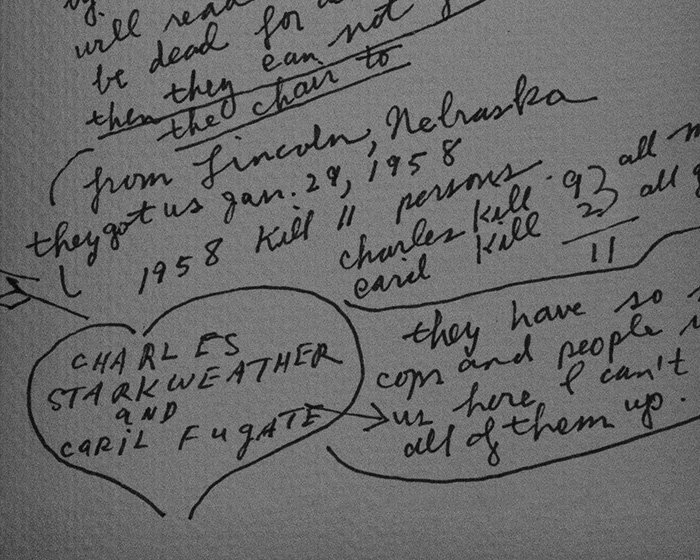 by.
will read
be dead for a
then they can not g
the chair to
from Lincoln, Nebraska
they got us Jan. 29, 1958
1958 kill 11 persons
charles kill 9 } all m
caril kill 2 } all g
11
CHARLES
STARKWEATHER
and
CARIL FugATE
they have so
cops and people
us here I can't
all of them up.